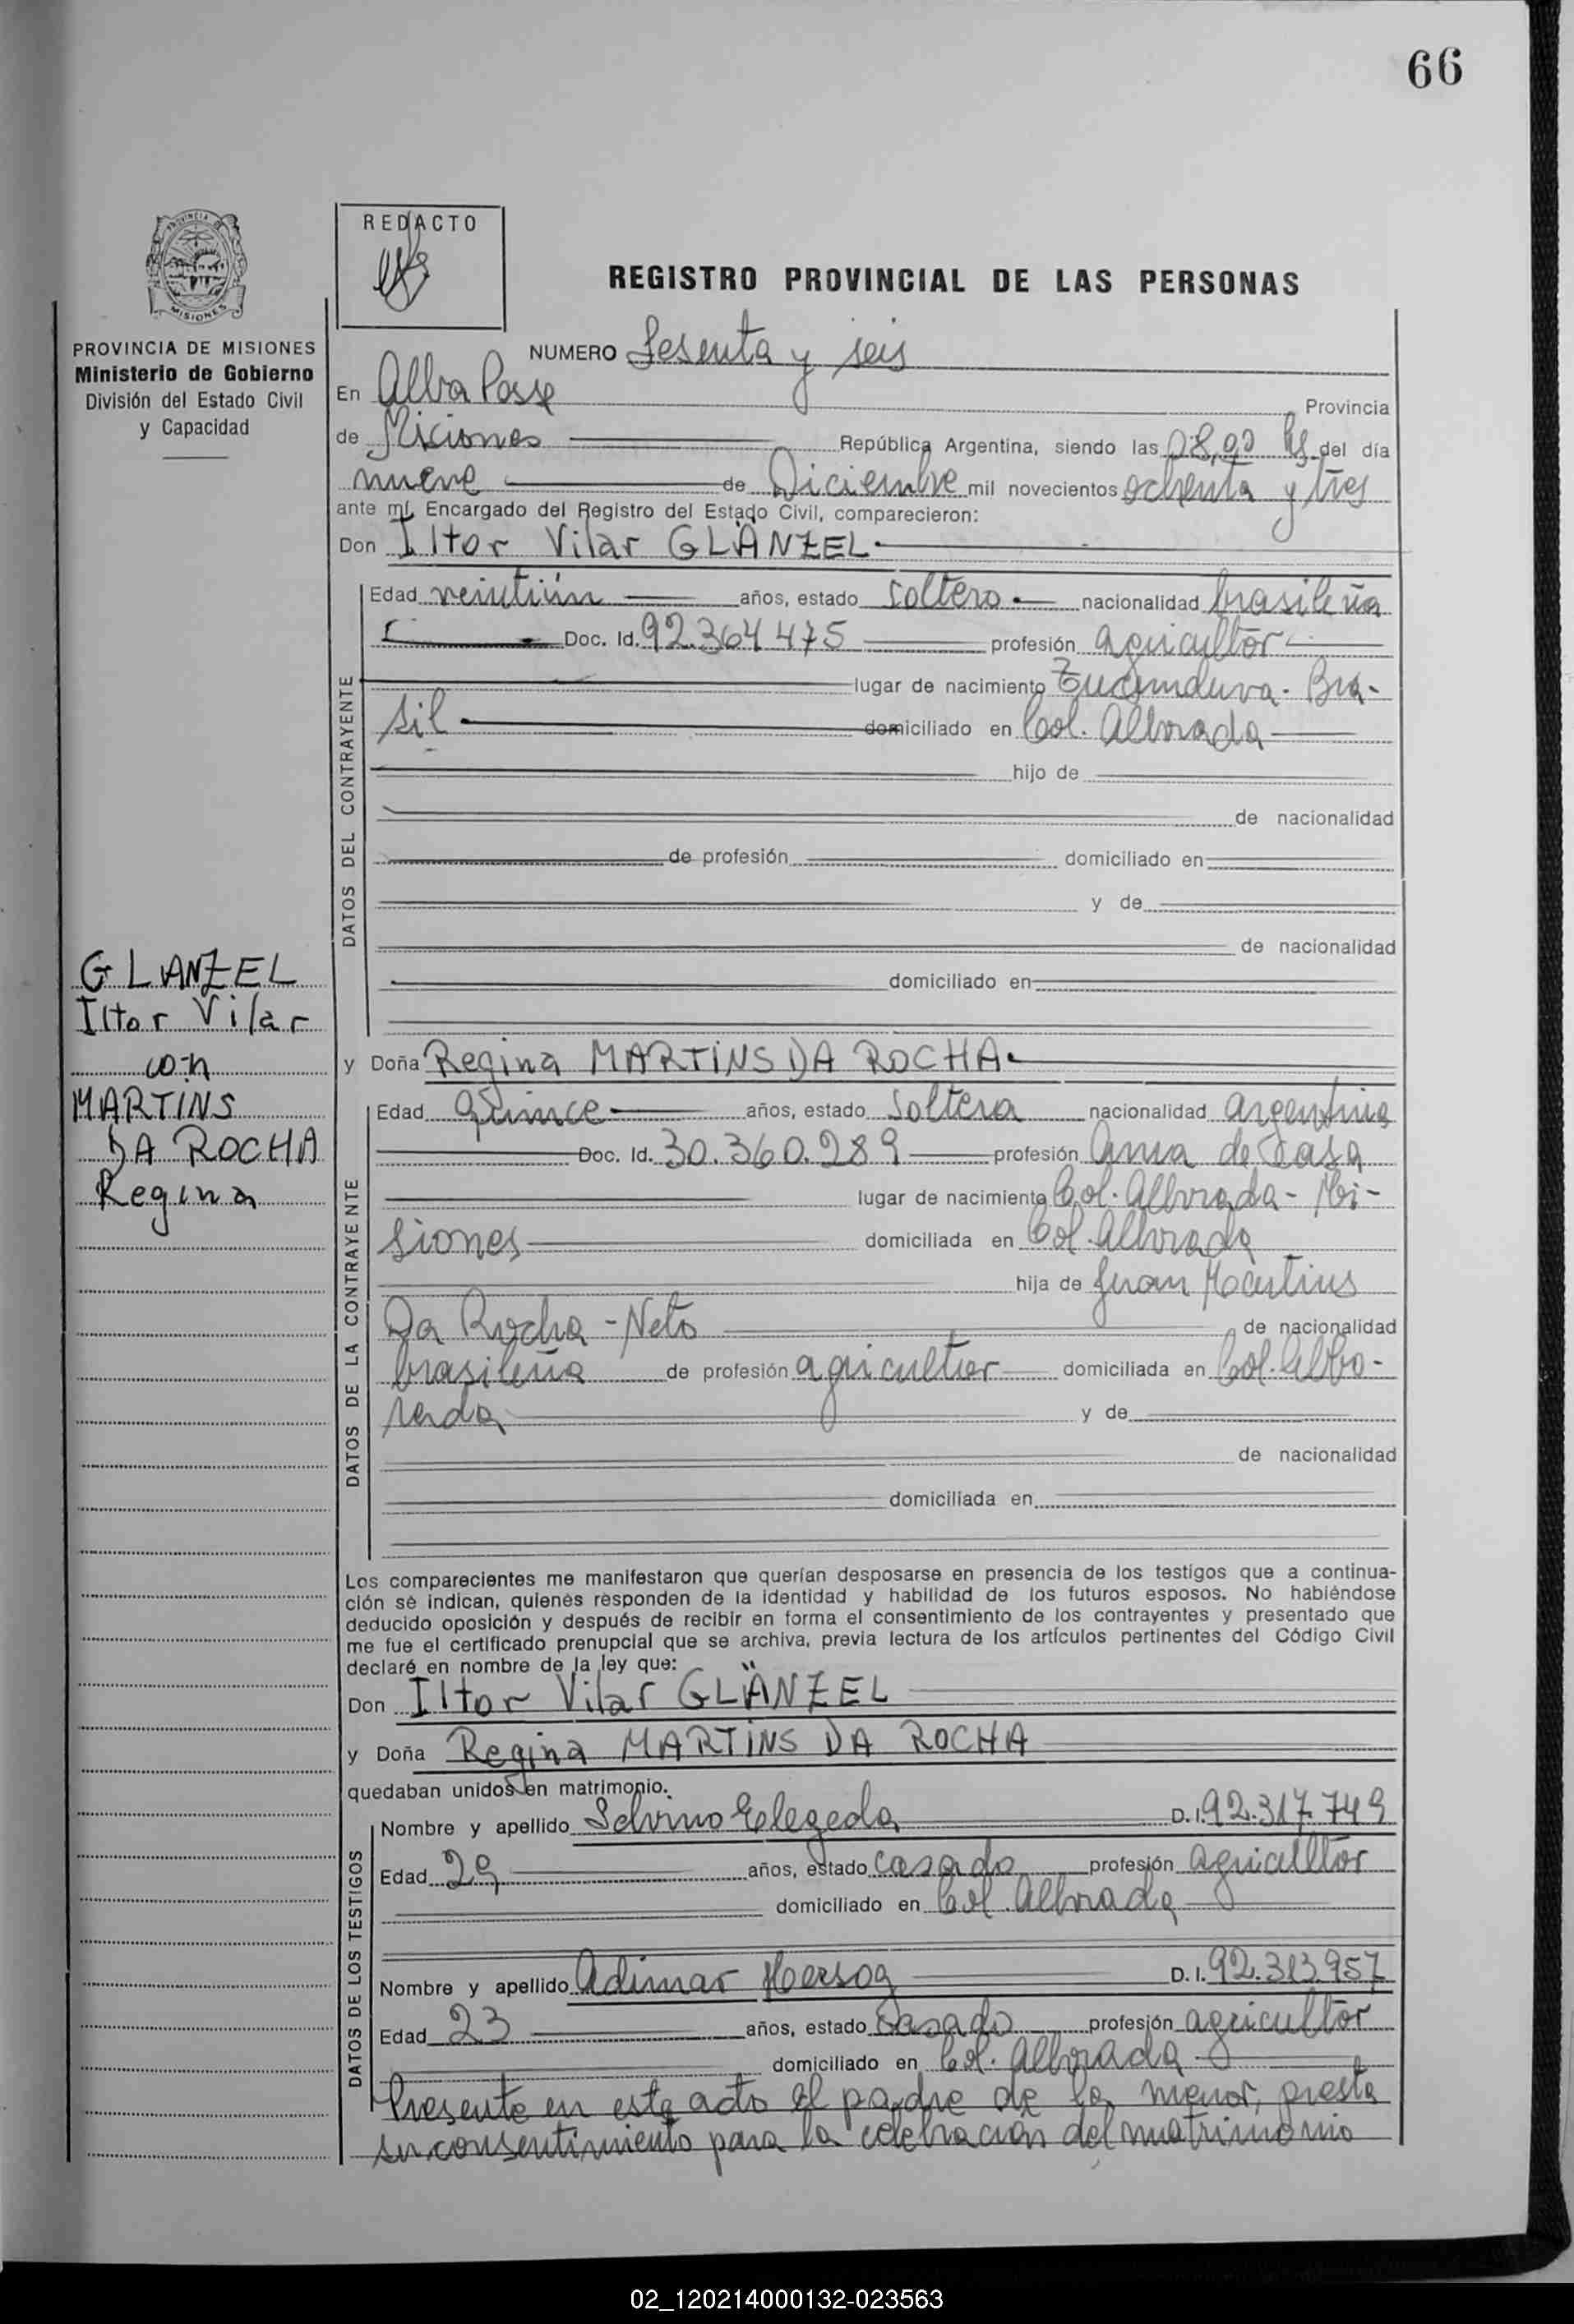 66
PROVINCIA DE MISIONES
Ministerio de Gobierno
División del Estado Civil
y Capacidad
REDACTO
REGISTRO PROVINCIAL DE LAS PERSONAS
NUMERO Sesenta y seis
En Alba Posse Provincia
de Misiones República Argentina, siendo las 08,00 hs del día
nueve de Diciembre mil novecientos ochenta y tres
ante mí, Encargado del Registro del Estado Civil, comparecieron:
Don Iltor Vilar GLÄNZEL
DATOS DEL CONTRAYENTE
Edad veintiún años, estado soltero nacionalidad brasileña
Doc. Id. 92.364.475 profesión agricultor
lugar de nacimiento Tucunduva - Bra-
sil domiciliado en Col. Alborada
hijo de
de nacionalidad
de profesión domiciliado en
y de
de nacionalidad
domiciliado en
GLANZEL
Iltor Vilar
con
MARTINS
DA ROCHA
Regina
y Doña Regina MARTINS DA ROCHA
DATOS DE LA CONTRAYENTE
Edad quince años, estado soltera nacionalidad argentina
Doc. Id. 30.360.289 profesión ama de casa
lugar de nacimiento Col. Alborada - Mi-
siones domiciliada en Col. Alborada
hija de Juan Martins
Da Rocha - Neto de nacionalidad
brasileña de profesión agricultor domiciliada en Col. Albo-
rada y de
de nacionalidad
domiciliada en
Los comparecientes me manifestaron que querían desposarse en presencia de los testigos que a continua-
ción se indican, quienes responden de la identidad y habilidad de los futuros esposos. No habiéndose
deducido oposición y después de recibir en forma el consentimiento de los contrayentes y presentado que
me fue el certificado prenupcial que se archiva, previa lectura de los artículos pertinentes del Código Civil
declaré en nombre de la ley que:
Don Iltor Vilar GLÄNZEL
y Doña Regina MARTINS DA ROCHA
quedaban unidos en matrimonio.
DATOS DE LOS TESTIGOS
Nombre y apellido D. I. 92.317.749
Edad 29 años, estado casado profesión agricultor
domiciliado en Col. Alborada
Nombre y apellido Adimar Hersog D. I. 92.313.957
Edad 23 años, estado casado profesión agricultor
domiciliado en Col. Alborada
Presente en este acto el padre de la menor, presta
su consentimiento para la celebración del matrimonio
02_120214000132-023563